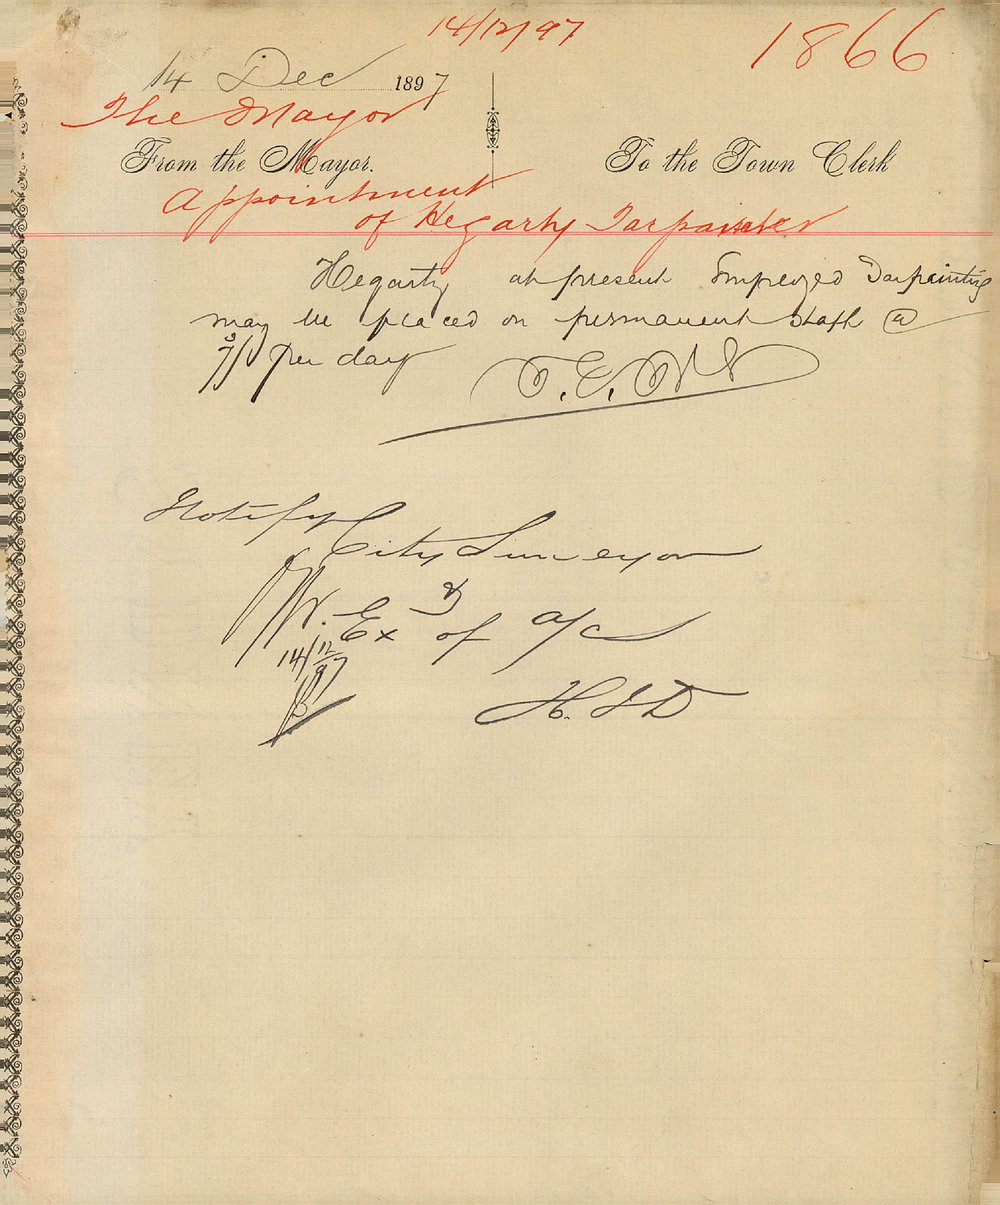 14/12/97
1866
14 Dec 1897
The Mayor
From the Mayor. To the Town Clerk
Appointment
of Hegarty Tarpainter
Hegarty at present Employed Tarpainting
may be placed on permanent staff @
7/ per day
Notify City Surveyor
& Ex of a/c
14/12/97
H.